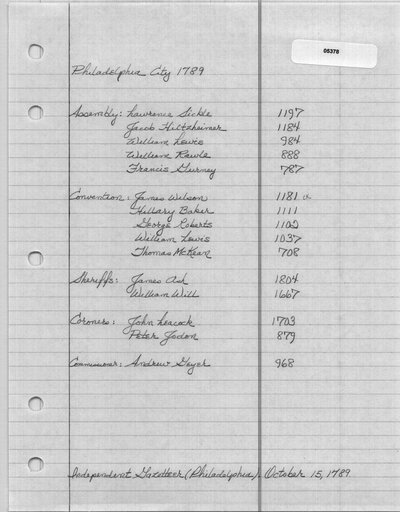 05378
Philadelphia City 1789
Assembly: Lawrence Sickle 1197
Jacob Hiltzheimer 1184
William Lewis 984
William Rawle 888
Francis Gurney 787
Convention: James Wilson 1181
Hillary Baker 1111
George Roberts 1102
William Lewis 1037
Thomas McKean 708
Sheriffs: James Ash 1804
William Will 1667
Coroners: John Leacock 1703
Peter Jodon 879
Commissioner: Andrew Geyer 968
Independent Gazetteer (Philadelphia). October 15, 1789